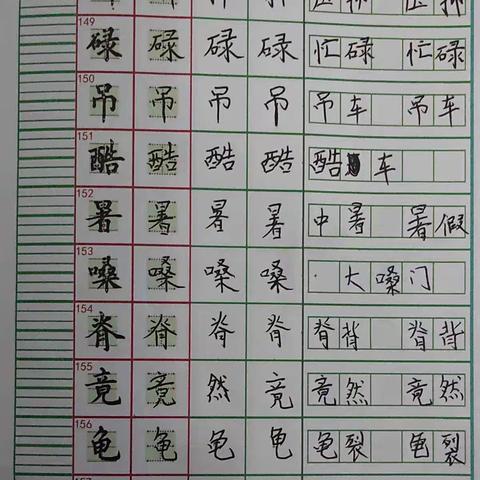 149 碌 碌 碌 碌 忙碌 忙碌
150 吊 吊 吊 吊 吊车 吊车
151 酷 酷 酷 酷 酷 车
152 暑 暑 暑 暑 中暑 暑假
153 嗓 嗓 嗓 嗓 大嗓门
154 脊 脊 脊 脊 脊背 脊背
155 竟 竟 然 竟 竟然 竟然
156 龟 龟 龟 龟 龟裂 龟裂